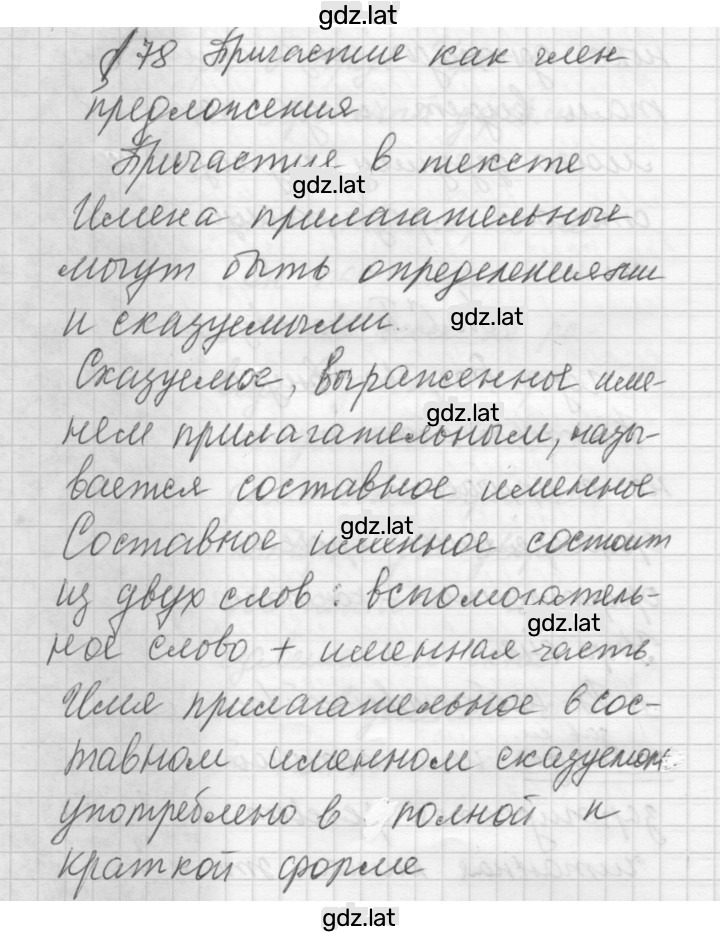 gdz.lat
§ 78 Причастие как член
предложения
Причастие в тексте
gdz.lat
Имена прилагательные
могут быть определениями
и сказуемыми.
gdz.lat
Сказуемое, выраженное име-
gdz.lat
нем прилагательным, назы-
вается составное именное
gdz.lat
Составное именное состоит
из двух слов: вспомогатель-
gdz.lat
ное слово + именная часть.
Имя прилагательное в сос-
тавном именном сказуемом
употреблено в полной и
краткой форме
gdz.lat